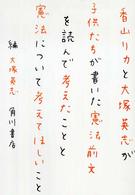 香山リカと大塚英志が
子供たちが書いた憲法前文
を読んで考えたことと
憲法について考えてほしいこと
編 大塚英志 角川書店